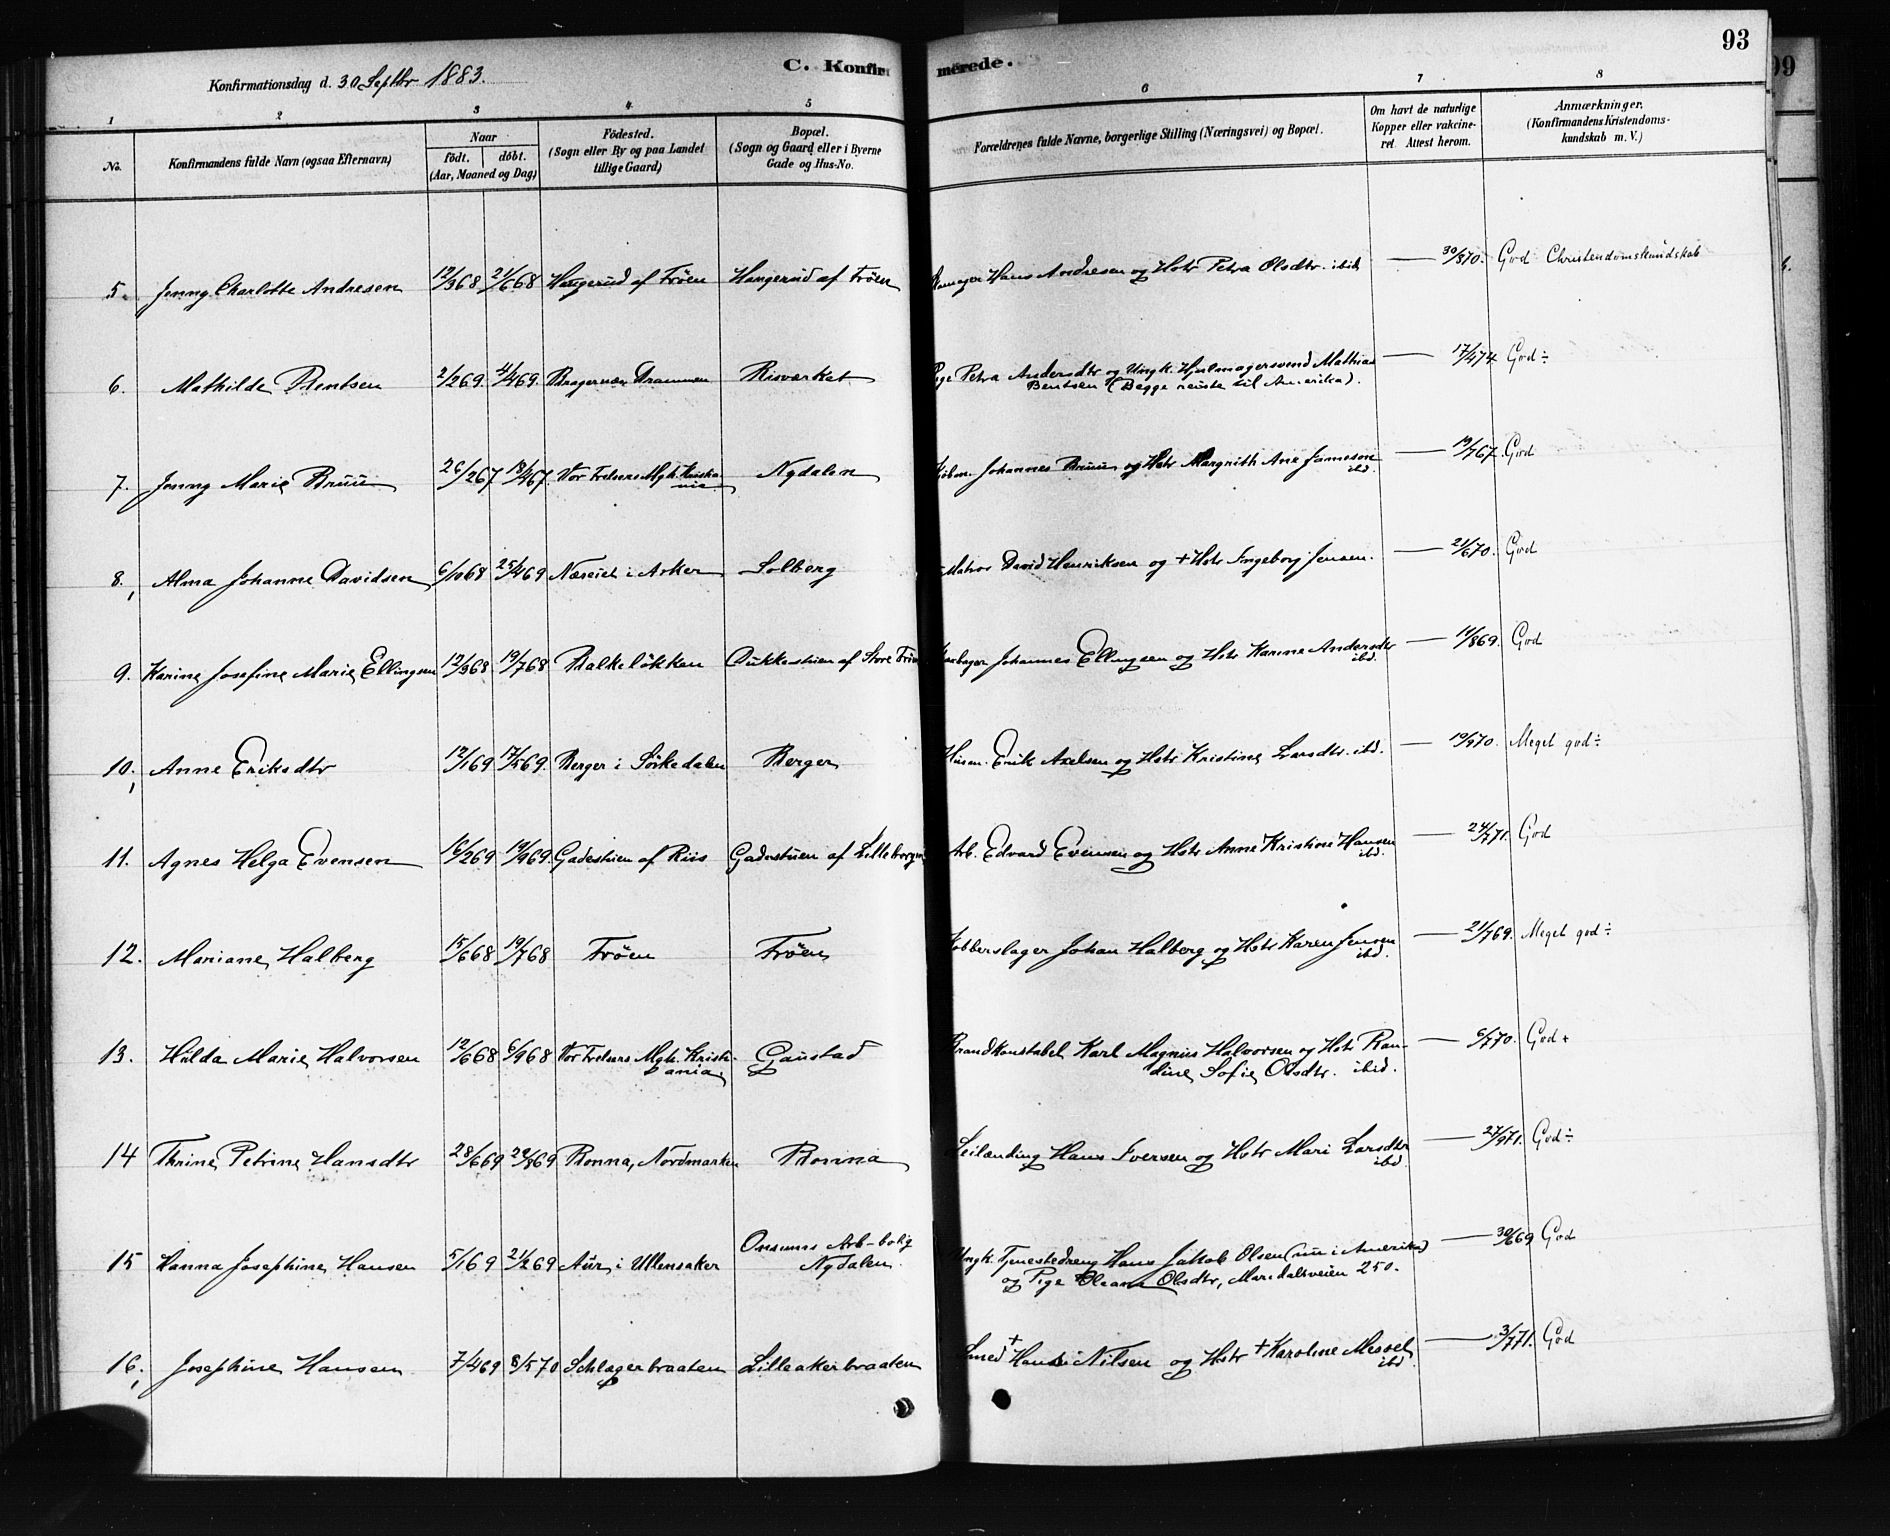 93
Konfirmationsdag d. 30 Septbr 1883.
C. Konfirmerede.
1 2 3 4 5 6 7 8
No.
Konfirmandens fulde Navn (ogsaa Efternavn)
Naar
født. døbt.
(Aar, Maaned og Dag)
Fødested.
(Sogn eller By og paa Landet
tillige Gaard)
Bopæl.
(Sogn og Gaard eller i Byerne
Gade og Hus-No.
Forældrenes fulde Navne, borgerlige Stilling (Næringsvei) og Bopæl.
Om havt de naturlige
Kopper eller vakcine-
ret. Attest herom.
Anmærkninger.
(Konfirmandens Kristendoms-
kundskab m. V.)
5. Jenny Charlotte Andresen 12/368 21/668 Haugerud af Frøen Haugerud af Frøen Hans Andresen og Hstr Petra Olsdtr. ibid. — 30/370. God Christendomskundskab
6. Mathilde Bentsen 2/269 4/469. Bragernæs Drammen Risværket Pige Petra Andersdtr og Ungk. Hjulmagersvend Mathias
Bentsen (Begge reiste til Amerika). — 17/474 God ÷
7. Jenny Marie Bruu 26/267 13/467. Vor Frelsers Mgh. Kristia-
nia Nydalen Johannes Bruu og Hstr Margrith Ane Jameson
ibd. — 19/767 God
8. Alma Johanne Davidsen 6/1068 25/469 i Aker Solberg Matros David Henriksen og + Hstr Ingeborg Jensen. — 21/670. God
9. Karine Josefine Marie Ellingsen 12/368 19/768 Balkeløkken Dukkestuen af Store Frøen Johannes Ellingsen og Hstr Karine Andersdtr
ibd. — 11/869. God
10. Anne Eriksdtr 12/169 17/569. Berger i Sørkedalen Berger Husm. Erik Axelsen og Hstr Kristine Larsdtr. ibd. — 19/970. Meget god ÷
11. Agnes Helga Evensen 16/269 19/969. Gadestuen af Riis Gadestuen af Lilleborgen Arb. Edvard Evensen og Hstr Anne Kristine Hansen
ibd. — 24/771. God
12. Mariane Halberg 15/668 19/768 Frøen Frøen Kobberslager Johan Halberg og Hstr Karen Jensen
ibd. — 21/769. Meget god ÷
13. Hulda Marie Halvorsen 12/668 6/968 Vor Frelsers Mgh. Kristi-
ania Gaustad Brandkonstabel Karl Magnus Halvorsen og Hstr Ran-
dine Sofie Olsdtr. ibid. — 6/770. God +
14 Thrine Petrine Hansdtr 28/669 29/869 Bonna, Nordmarken Bonna Leilænding Hans Iversen og Hstr Mari Larsdtr
ibd. — 27/971. God ÷
15 Hanna Josephine Hansen 5/169 21/269 Aur i Ullensaker Onsums Arb-bolig
Nydalen. Ungk. Tjenestedreng Hans Jakob Olsen (nu i Amerika)
og Pige Oleana Olsdtr, Maridalsveien 250. — 30/669 God
16. Josephine Hansen 7/469 8/570 Schlagerbraaten Lilleakerbraaten Smed + Hans Nilsen og Hstr + Karoline Messel
ibd. — 3/771. God